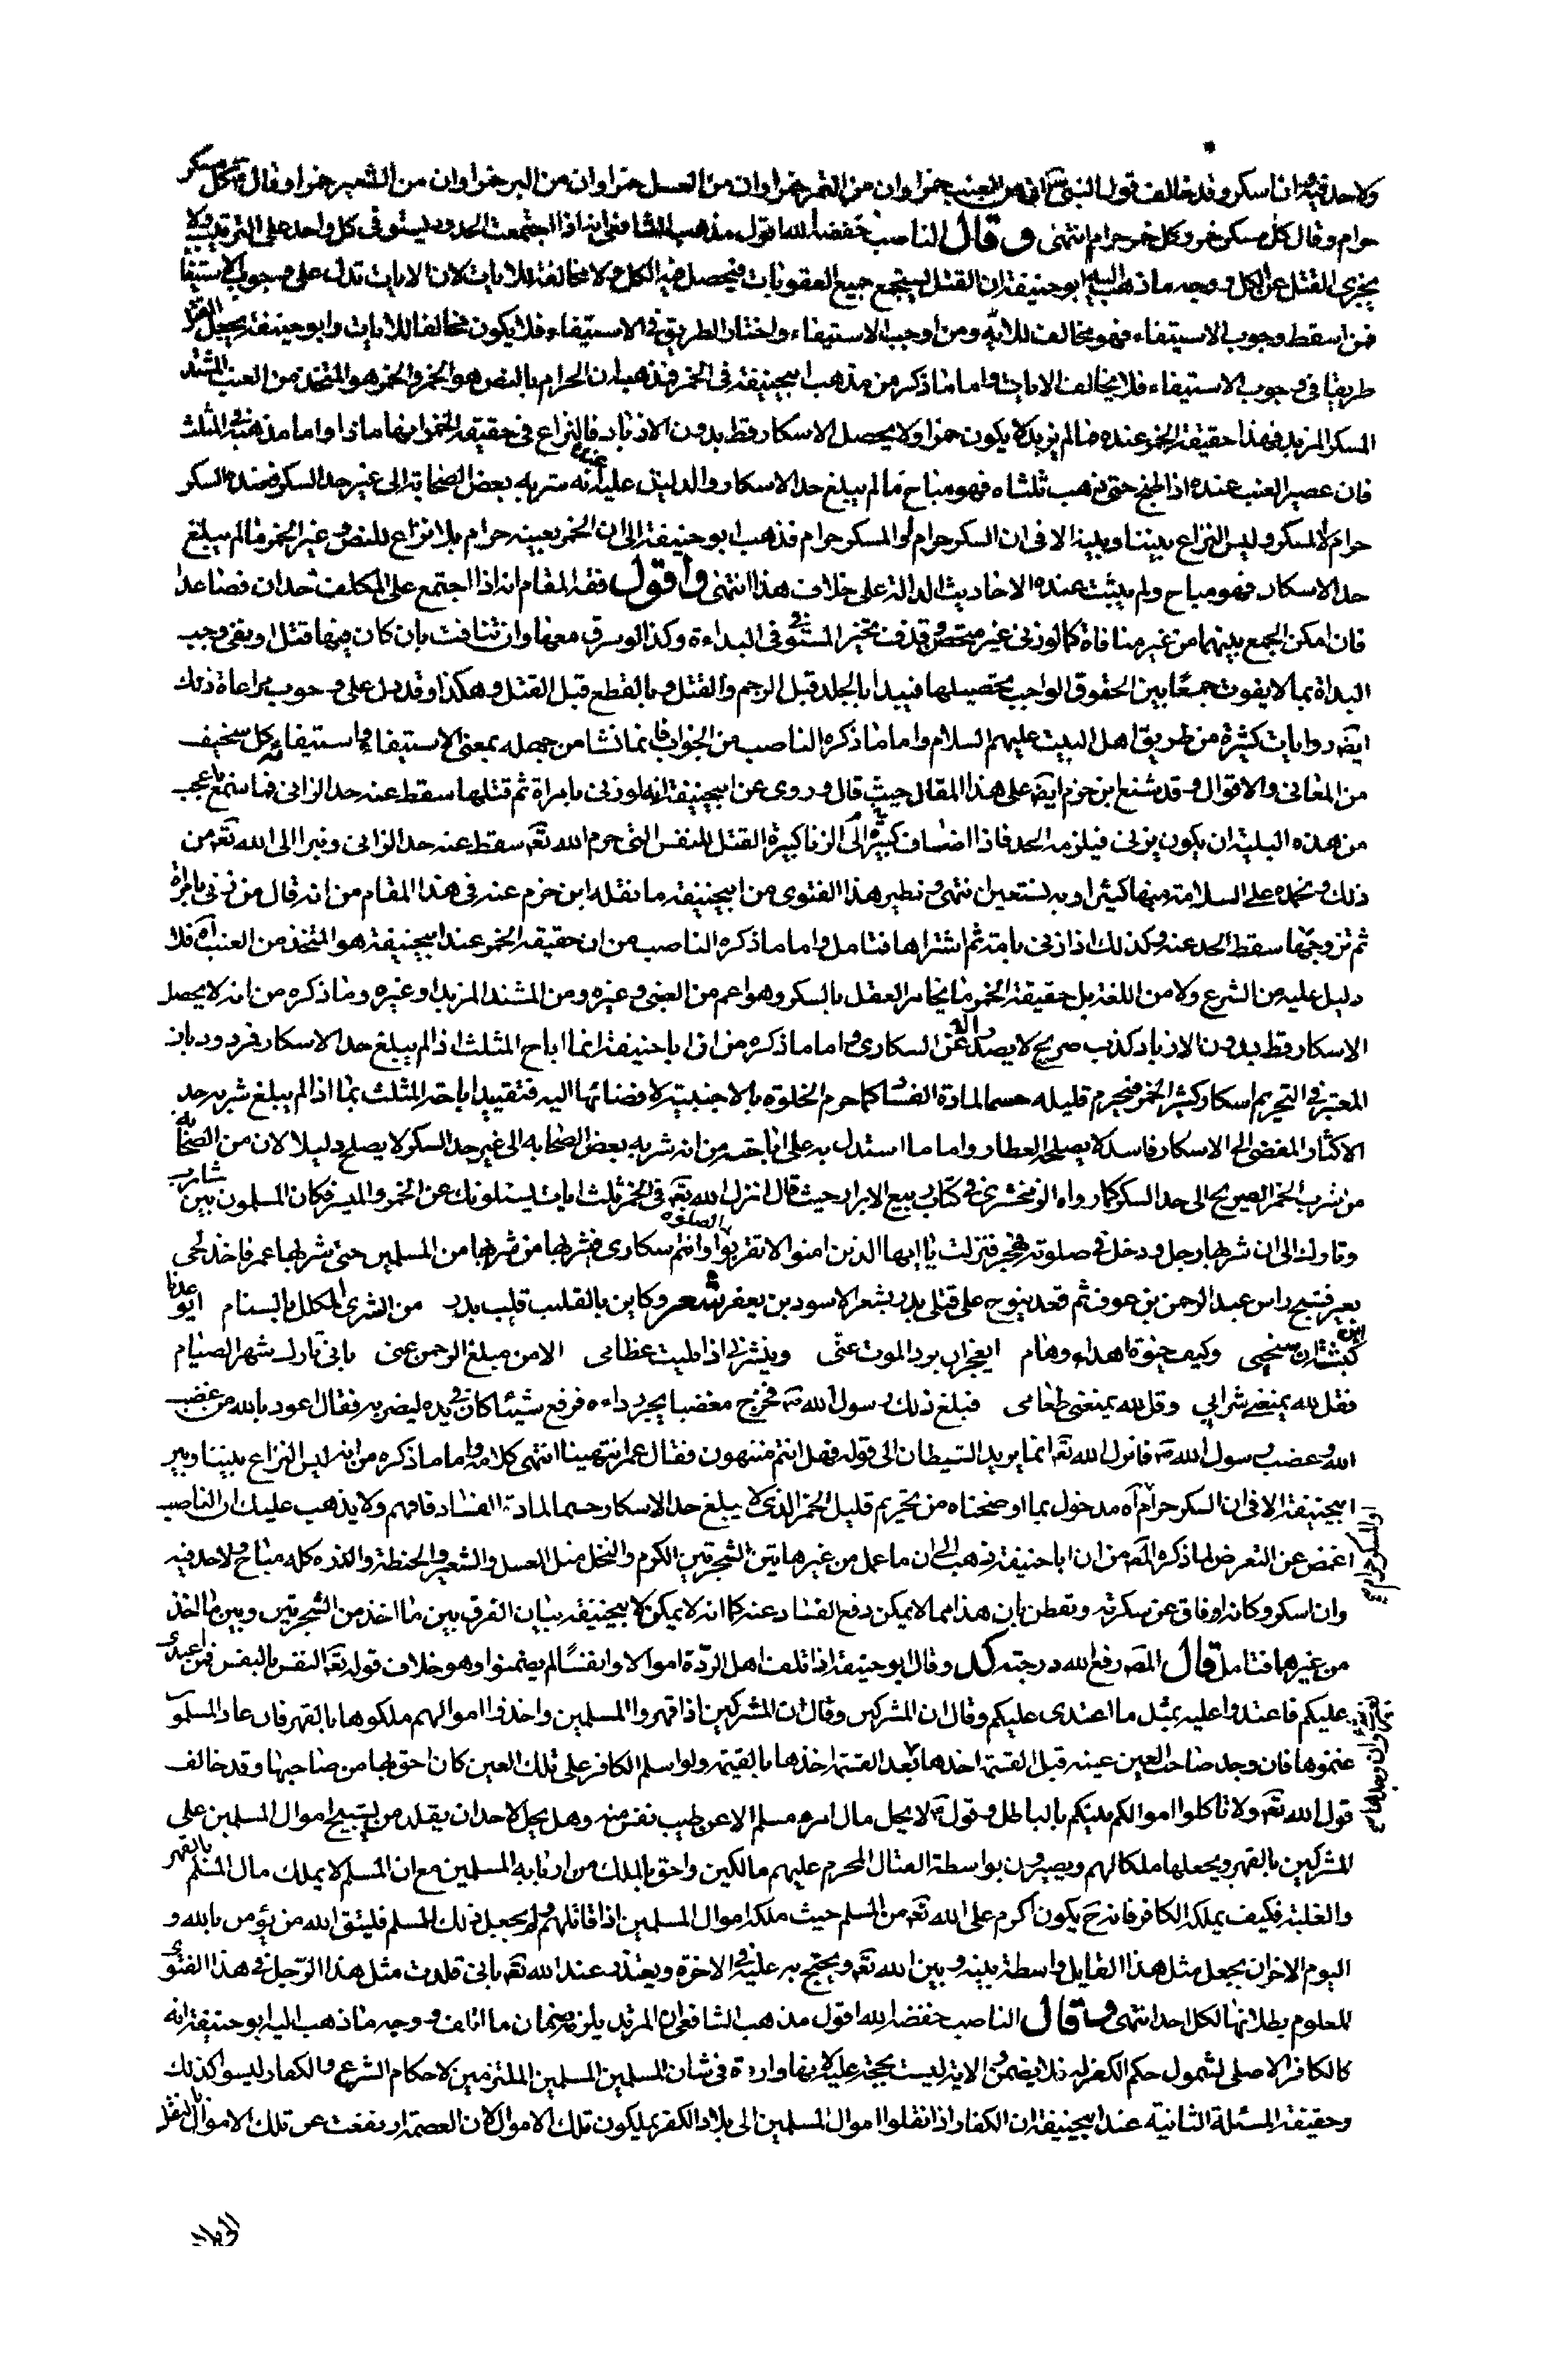 ولاحد فيه وان اسكر وقد خالف قول النبي ص ان من العنب خمرا وان من التمر خمرا وان من العسل خمرا وان من البر خمرا وان من الشعير خمرا وقال ص كل مسكر
حرام وقال كل مسكر خمر وكل خمر حرام انتهى وقال الناصب خفضه الله اقول مذهب الشافعي انه اذا اجتمعت الحدود يستوفى كل واحد على الترتيب ولا
يجزى القتل عن الكل ووجه ما ذهب اليه ابوحنيفة ان القتل يستجمع جميع العقوبات فيحصل فيه الكل ولا مخالفة للايات لان الايات تدل على وجوب الاستيفاء
فمن اسقط وجوب الاستيفاء فهو مخالف للاية ومن اوجب الاستيفاء واختار الطريق في الاستيفاء فلا يكون مخالفا للايات وابوحنيفة يجعل القتل
طريقا في وجوب الاستيفاء فلا يخالف الايات واما ما ذكر من مذهب ابيحنيفة في الخمر فمذهبه ان الحرام بالنص هو الخمر والخمر هو المتخذ من العنب المشتد
المسكر المزبد فهذا حقيقة الخمر عنده فما لم يزبد لا يكون خمرا ولا يحصل الاسكار قط بدون الازباد فالنزاع في حقيقة الخمر انها ماذا واما مذهبه في المثلث
فان عصير العنب عنده اذا طبخ حتى ذهب ثلثاه فهو مباح ما لم يبلغ حد الاسكار والدليل عليه عنده انه شربه بعض الصحابة الى غير حد السكر فعنده السكر
حرام لا المسكر وليس النزاع بيننا وبينه الا في ان السكر حرام او المسكر حرام فذهب ابوحنيفة الى ان الخمر بعينه حرام بلا نزاع للنص وغير الخمر ما لم يبلغ
حد الاسكار فهو مباح ولم يثبت عنده الاحاديث الدالة على خلاف هذا انتهى واقول فقه المقام انه اذا اجتمع على المكلف حدان فصاعدا
فان امكن الجمع بينهما من غير منافاة كما لو زنى غير محصن وقذف تخير المستوفى في البداءة وكذا لو سرق معها وان تنافت بان كان فيها قتل او نفي وجب
البداة بما لا يفوت جمعا بين الحقوق الواجب تحصيلها فيبدا بالجلد قبل الرجم والقتل وبالقطع قبل القتل وهكذا وقد دل على وجوب مراعاة ذلك
ايضا روايات كثيرة من طريق اهل البيت عليهم السلام واما ما ذكره الناصب من الجواب فانما نشا من جهله بمعنى الاستيفاء واستيفائه كل سخيف
من المعاني والاقوال وقد شنع ابن حزم ايضا على هذا المقال حيث قال وروى عن ابيحنيفة انه لو زنى بامراة ثم قتلها سقط عنه حد الزاني فما سمع باعجب
من هذه البلية ان يكون يزني فيلزمه الحد فاذا اضاف كبيرة الى الزنا كبيرة القتل للنفس التي حرم الله تعه سقط عنه حد الزاني ونبرا الى الله تعه من
ذلك ونحمده على السلامة منها كثيرا وبه نستعين انتهى ونظير هذا الفتوى من ابيحنيفة ما نقله ابن حزم عنه في هذا المقام من انه قال من زنى بامراة
ثم تزوجها سقط الحد عنه وكذلك اذا زنى بامة ثم اشتراها فتامل واما ما ذكره الناصب من ان حقيقة الخمر عند ابيحنيفة هو المتخذ من العنب اه فلا
دليل عليه من الشرع ولا من اللغة بل حقيقة الخمر ما يخامر العقل بالسكر وهو اعم من العنبي وغيره ومن المشتد المزبد او غيره وما ذكره من انه لا يحصل
الاسكار قط بدون الازباد كذب صريح لا يصدر الا عن السكارى واما ما ذكره من ان اباحنيفة انما اباح المثلث اذا لم يبلغ حد الاسكار فمردود بان
المعتبر في التحريم اسكار كثير الخمر فيحرم قليله حسما لمادة الفساد كما حرم الخلوة بالاجنبية لافضائها اليه فتقييد اباحة المثلث بما اذا لم يبلغ شربه حد
الاكثار المفضى الى الاسكار فاسد لا يصلحه العطار واما ما استدل به على اباحته من انه شربه بعض الصحابه الى غير حد السكر لا يصلح دليلا لان من الصحابه
من شرب الخمر الصريح الى حد السكر كما رواه الزمخشرى في كتاب ربيع الابرار حيث قال انزل الله تعه في الخمر ثلث ايات يسئلونك عن الخمر والميسر فكان المسلمون بين شارب
وتارك الى ان شربها رجل ودخل في صلوته فهجر فنزلت يا ايها الذين امنوا لا تقربوا الصلوة وانتم سكارى فشربها من شربها من المسلمين حتى شربها عمر فاخذ لحى
بعير فشج راس عبدالرحمن بن عوف ثم قعد ينوح على قتلى بدر بشعر الاسود بن يعفر شعر وكاين بالقليب قليب بدر من الشرى المكلل بالسنام ايوعدنا
ابن كبشة ان سنحيى وكيف حيوة اصداء وهام ايعجز ان يرد الموت عنى وينشرنى اذا بليت عظامى الا من مبلغ الرحمن عنى بانى تارك شهر الصيام
فقل لله يمنعنى شرابى وقل لله يمنعنى طعامى فبلغ ذلك رسول الله ص فخرج مغضبا يجر رداءه فرفع شيئا كان في يده ليضربه فقال اعوذ بالله من غضب
الله وغضب رسول الله ص فانزل الله تعه انما يريد الشيطان الى قوله فهل انتم منتهون فقال عمر انتهينا انتهى كلامه واما ما ذكره من انه ليس النزاع بيننا وبين
ابيحنيفة الا في ان السكر حرام اه مدخول بما اوضحناه من تحريم قليل الخمر الذي لا يبلغ حد الاسكار حسما لمادة الفساد فافهم ولا يذهب عليك ان الناصب
او المسكر حرام
اغمض عن التعرض لما ذكره المصه من ان اباحنيفة ذهب الى ان ما عمل من غير هاتين الشجرتين الكرم والنخل مثل العسل والشعير والحنطة والذره كله مباح ولا حد فيه
وان اسكر وكانه افاق عن سكرته وتفطن بان هذا مما لا يمكن دفع الفساد عنه كما انه لا يمكن لابيحنيفه بيان الفرق بين ما اخذ من الشجرتين وبين ما اخذ
من غيرهما فتامل قال المصه رفع الله درجته كد وقال ابوحنيفة اذا تلف اهل الردة اموالا وانفسا لم يضمنوا وهو خلاف قوله تعه النفس بالنفس فمن اعتدى
عليكم فاعتدوا عليه بمثل ما اعتدى عليكم وقال ان المشركين وقال ان المشركين اذا قهروا المسلمين واخذوا اموالهم ملكوها بالقهر فان عاد المسلمون
غنموها فان وجد صاحب العين عينه قبل القسمة اخذها وبعد القسمة اخذها بالقيمة ولو اسلم الكافر على تلك العين كان احق بها من صاحبها وقد خالف
قول الله تعه ولا تاكلوا اموالكم بينكم بالباطل وقوله ص لا يحل مال امرء مسلم الا عن طيب نفس منه وهل يحل لاحد ان يقلد من يستبيح اموال المسلمين على
المشركين بالقهر ويجعلها ملكا لهم ويصيرون بواسطة القتال المحرم عليهم مالكين واحق بالملك من اربابه المسلمين مع ان المسلم لا يملك مال المسلم بالقهر
والغلبة فكيف يملكه الكافر فانه ح يكون اكرم على الله تعه من المسلم حيث ملكه اموال المسلمين اذا قاتلهم ولم يجعل ذلك للمسلم فليتق الله من يؤمن بالله و
اليوم الاخر ان يجعل مثل هذا القايل واسطة بينه وبين الله تعه ويحتج به عليه في الاخرة ويعتذر عند الله تعه بانى قلدت مثل هذا الرجل في هذا الفتوى
المعلوم بطلانها لكل احد انتهى وقال الناصب خفضه الله اقول مذهب الشافعي ان المرتد يلزمه ضمان ما اتلف ووجه ما ذهب اليه ابوحنيفة انه
كالكافر الاصلى لشمول حكم الكفر له فلا يضمن والاية ليست بحجة عليه لانها واردة في شان المسلمين المسلمين الملتزمين لاحكام الشرع والكفار ليسوا كذلك
وحقيقة المسئلة الثانية عند ابيحنيفة ان الكفار اذا نقلوا اموال المسلمين الى بلاد الكفر يملكون تلك الاموال لان العصمة ارتفعت عن تلك الاموال بالنقل